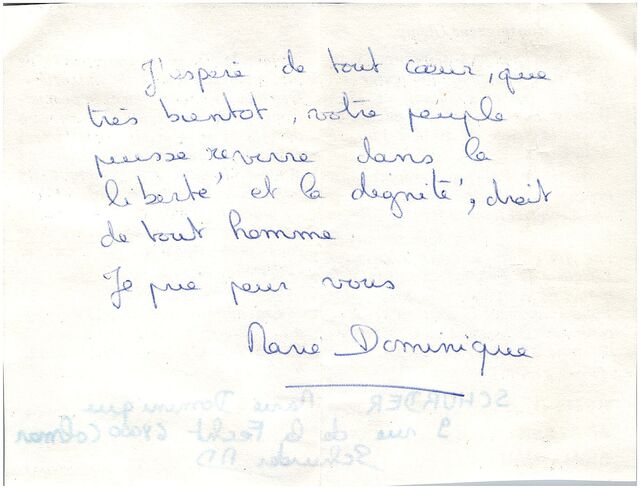 J'espère de tout cœur, que
très bientot, votre peuple
puisse revivre dans la
liberté et la dignité, droit
de tout homme
Je prie pour vous
Marie Dominique
SCHURDER Marie Dominique
9 rue de la Fecht 68000 Colmar